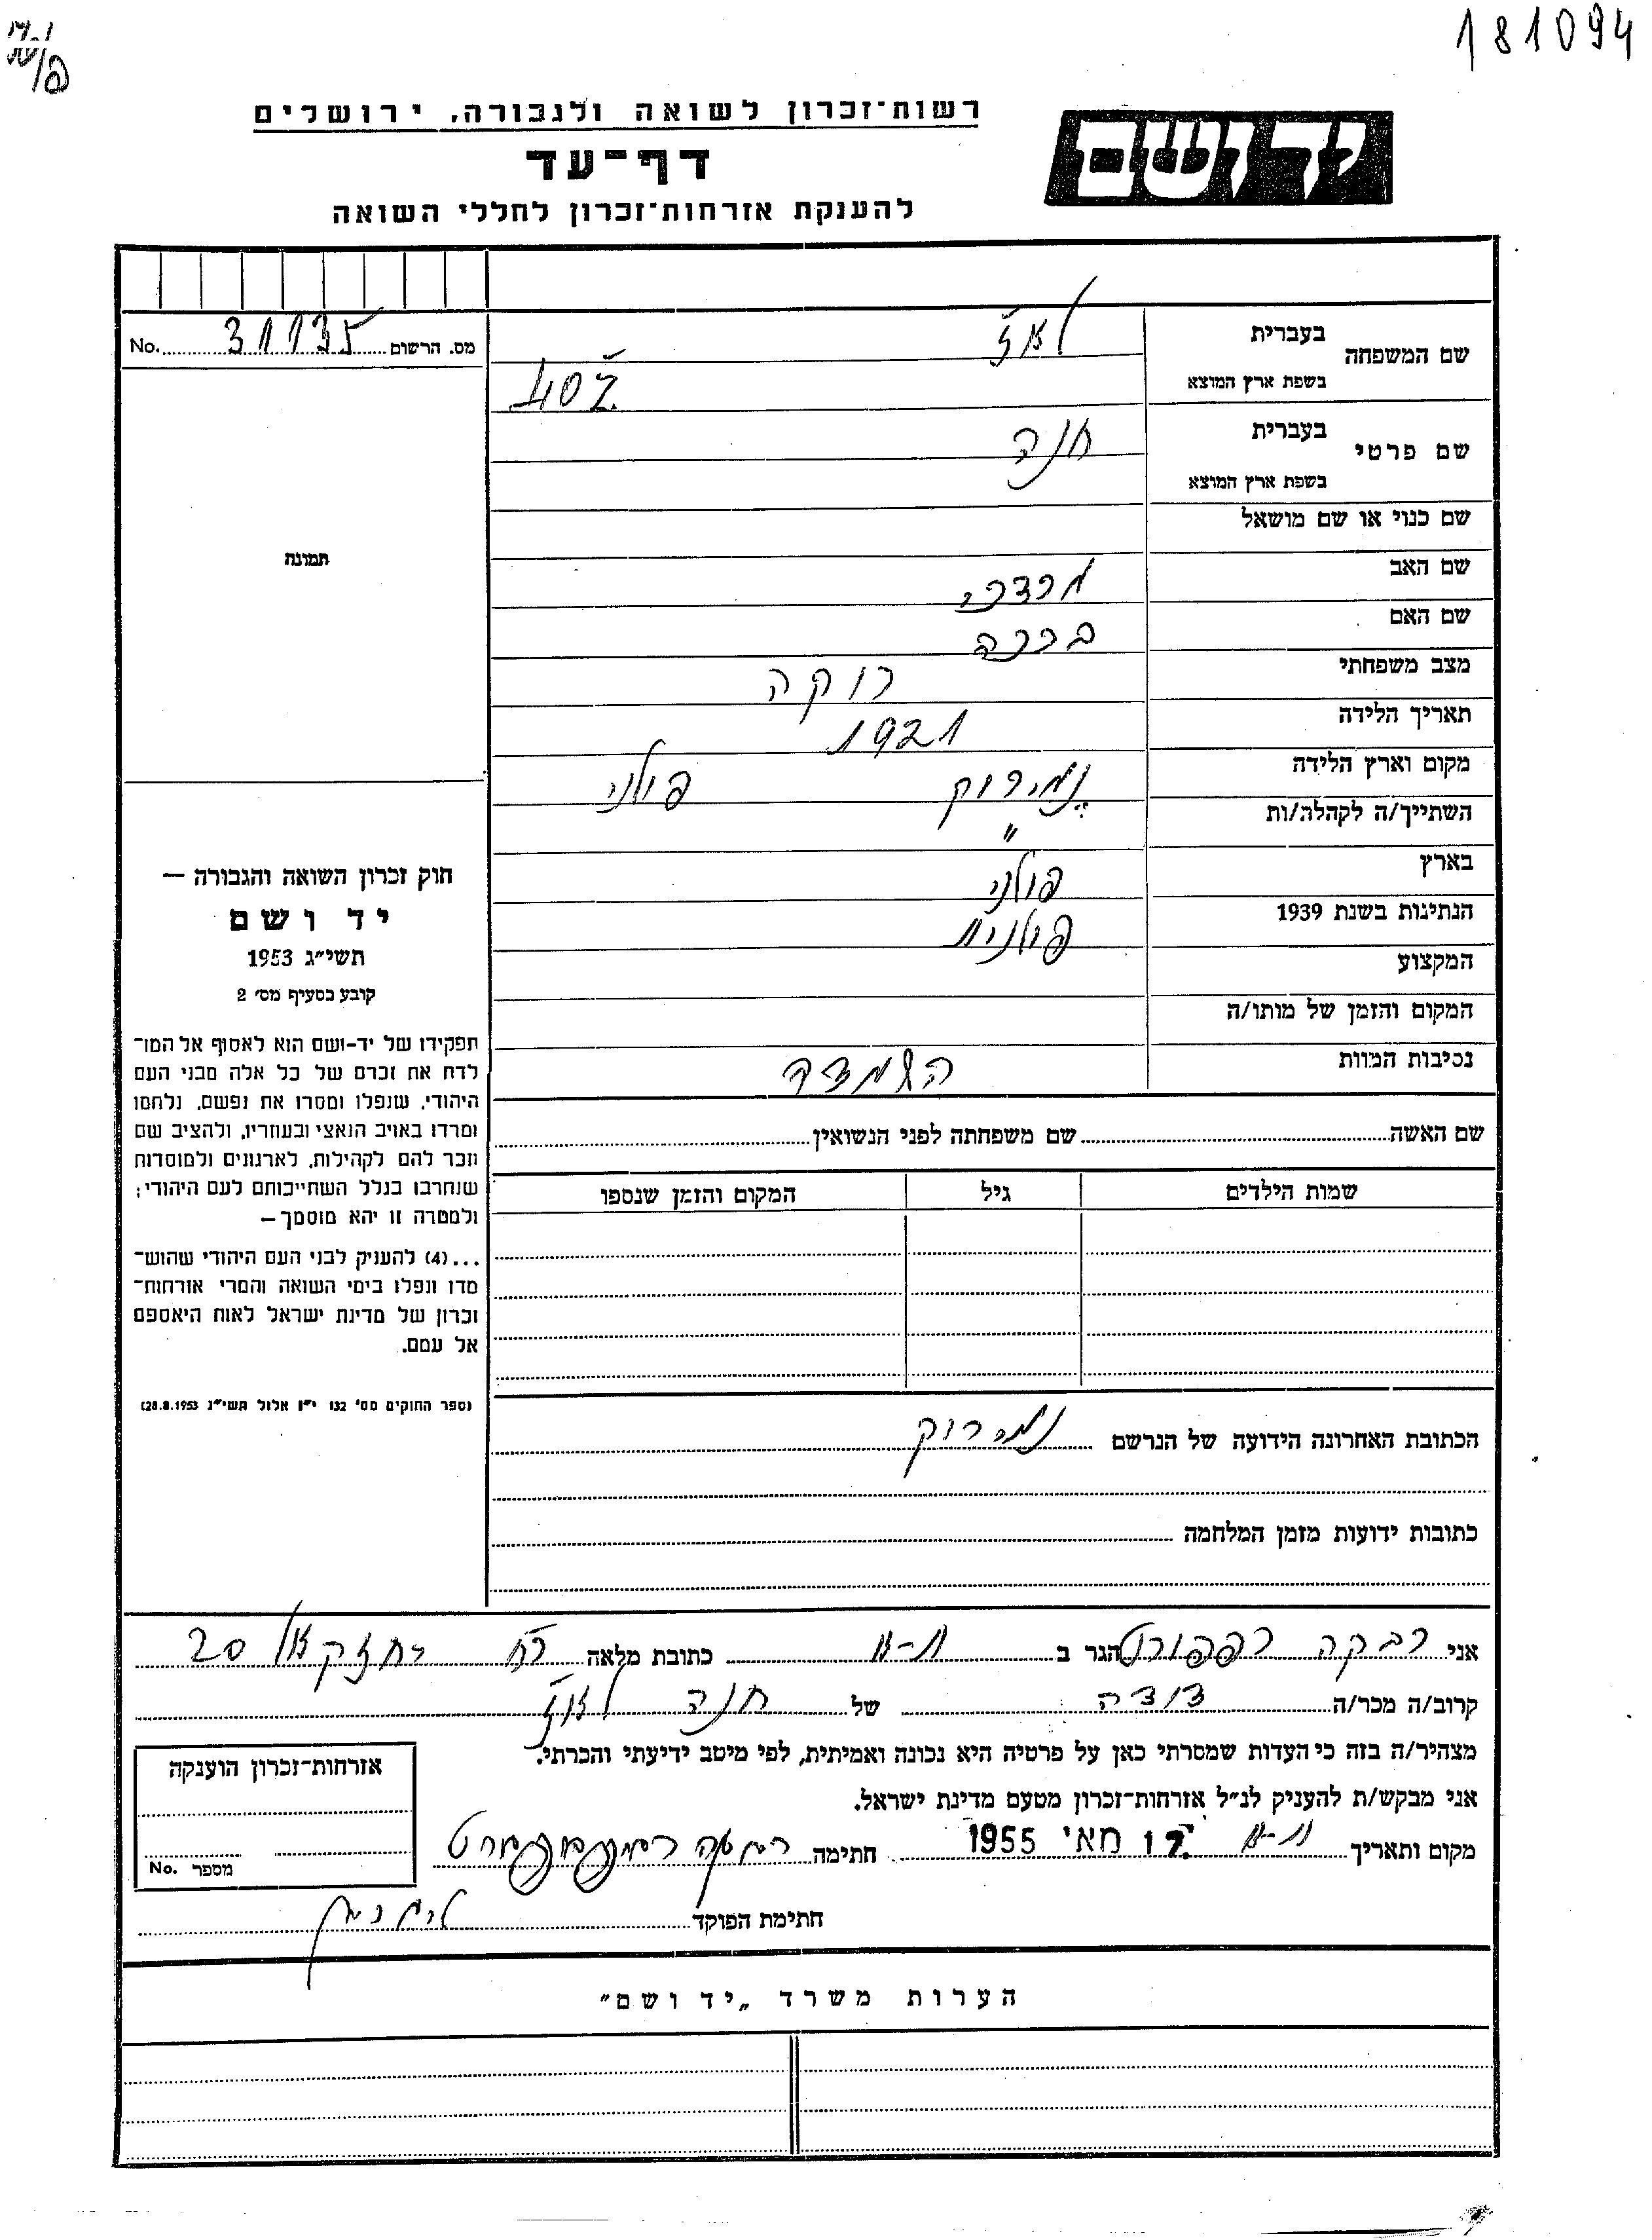 181094
רשות־זכרון לשואה ולגבורה, ירושלים
יד ושם
דף־עד
להענקת אזרחות־זכרון לחללי השואה
מס. הרשום 31135 No.
שם המשפחה
בעברית
לאז'
בשפת ארץ המוצא
שם פרטי
בעברית
חנה
בשפת ארץ המוצא
שם כנוי או שם מושאל
שם האב מרדכי
שם האם ברכה
מצב משפחתי רוקה
תאריך הלידה 1921
מקום וארץ הלידה נמירוק פולני
השתייך/ה לקהלה/ות "
בארץ פולני
הנתינות בשנת 1939 פולנית
המקצוע
המקום והזמן של מותו/ה
נסיבות המוות השמדה
תמונה
חוק זכרון השואה והגבורה —
יד ושם
תשי״ג 1953
קובע בסעיף מס׳ 2
תפקידו של יד-ושם הוא לאסוף אל המו־
לדת את זכרם של כל אלה מבני העם
היהודי, שנפלו ומסרו את נפשם, נלחמו
ומרדו באויב הנאצי ובעוזריו, ולהציב שם
וזכר להם לקהילות, לארגונים ולמוסדות
שנחרבו בגלל השתייכותם לעם היהודי;
ולמטרה זו יהא מוסמך—
...(4) להעניק לבני העם היהודי שהוש־
מדו ונפלו בימי השואה והמרי אזרחות־
זכרון של מדינת ישראל לאות היאספם
אל עמם.
(ספר החוקים מס׳ 132 י״ז אלול תשי״ג 28.8.1953)
שם האשה שם משפחתה לפני הנשואין
שמות הילדים גיל המקום והזמן שנספו
הכתובת האחרונה הידועה של הנרשם נמירוק
כתובות ידועות מזמן המלחמה
אני רבקה רפפורט הגר ב ת-א כתובת מלאה רח' יחזקאל 20
קרוב/ה מכר/ה דודה של חנה לאז'
מצהיר/ה בזה כי העדות שמסרתי כאן על פרטיה היא נכונה ואמיתית, לפי מיטב ידיעתי והכרתי.
אני מבקש/ת להעניק לנ״ל אזרחות־זכרון מטעם מדינת ישראל.
מקום ותאריך ת-א 17 מאי 1955 חתימה רבקה רפפורט
חתימת הפוקד
אזרחות־זכרון הוענקה
מספר No.
הערות משרד „יד ושם״